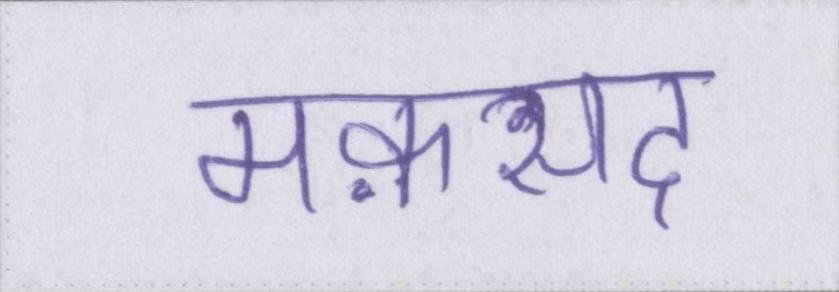 मक़सद